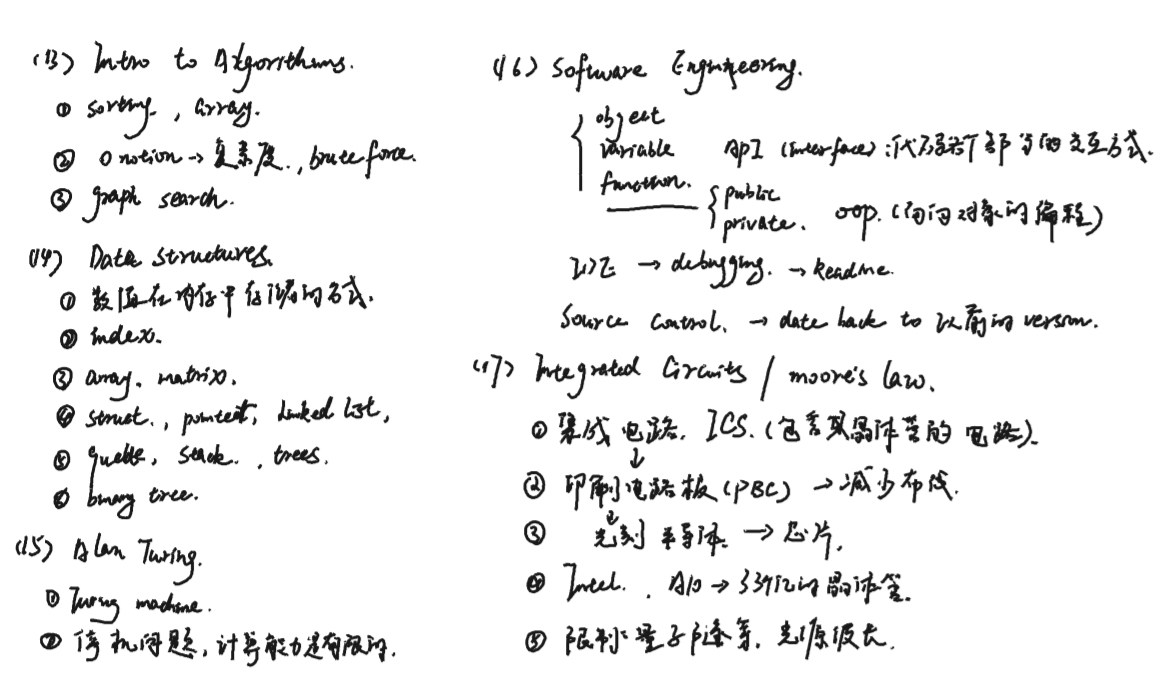 (13) Intro to Algorithms.
① sorting, array.
② O notion → 复杂度., brute force.
③ graph search.
(14) Data structures.
① 数值在内存中存储的方式.
② index.
③ array, matrix.
④ struct., pointer, Linked List,
⑤ queue, stack., trees.
⑥ binary tree.
(15) Alan Turing.
① Turing machine.
② 停机问题, 计算能力是有限的.
(16) Software Engineering.
object
variable API (interface): 代码各个部分的交互方式.
function. public
private. OOP. (面向对象的编程)
IDE → debugging. → Readme.
Source Control. → date back to 以前的 version.
(17) Integrated Circuits / moore's law.
① 集成电路. ICS. (包含 晶体管的电路).
↓
② 印刷电路板 (PBC) → 减少布线.
↓
③ 光刻 半导体. → 芯片.
④ Intel., A10 → 33亿的晶体管.
⑤ 限制: 量子隧 , 光源波长.